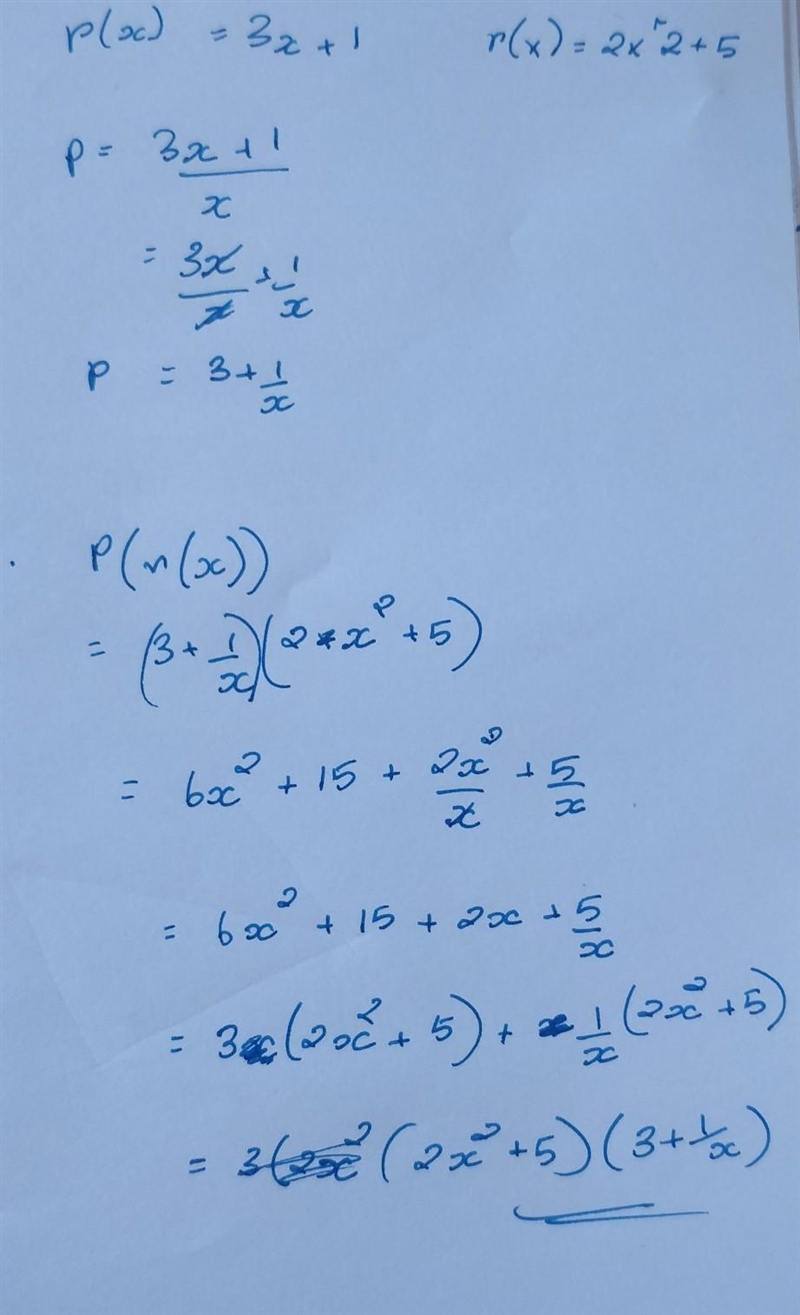 p(x) = 3x + 1 r(x) = 2x^2 + 5
p = 3x + 1
x
= 3x + 1
x x
p = 3 + 1
x
P(r(x))
= (3 + 1/x)(2 x² + 5)
= 6x² + 15 + 2x²/x + 5/x
= 6x² + 15 + 2x + 5/x
= 3(2x² + 5) + 1/x(2x² + 5)
= (2x² + 5)(3 + 1/x)